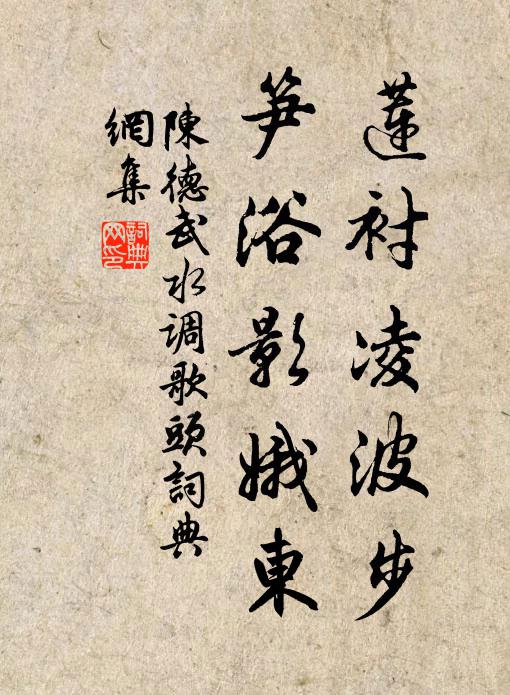 蓮衬凌波步
笋浴影娥東
陳德武水调歌頭詞典
網集
詞典
网印